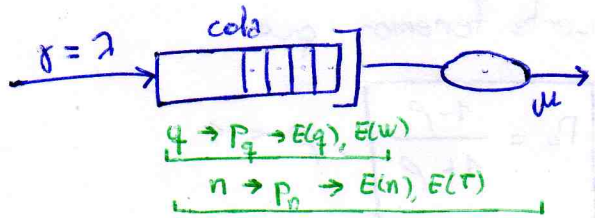 cola
γ = λ
μ
q → P_q → E(q), E(w)
n → P_n → E(n), E(τ)